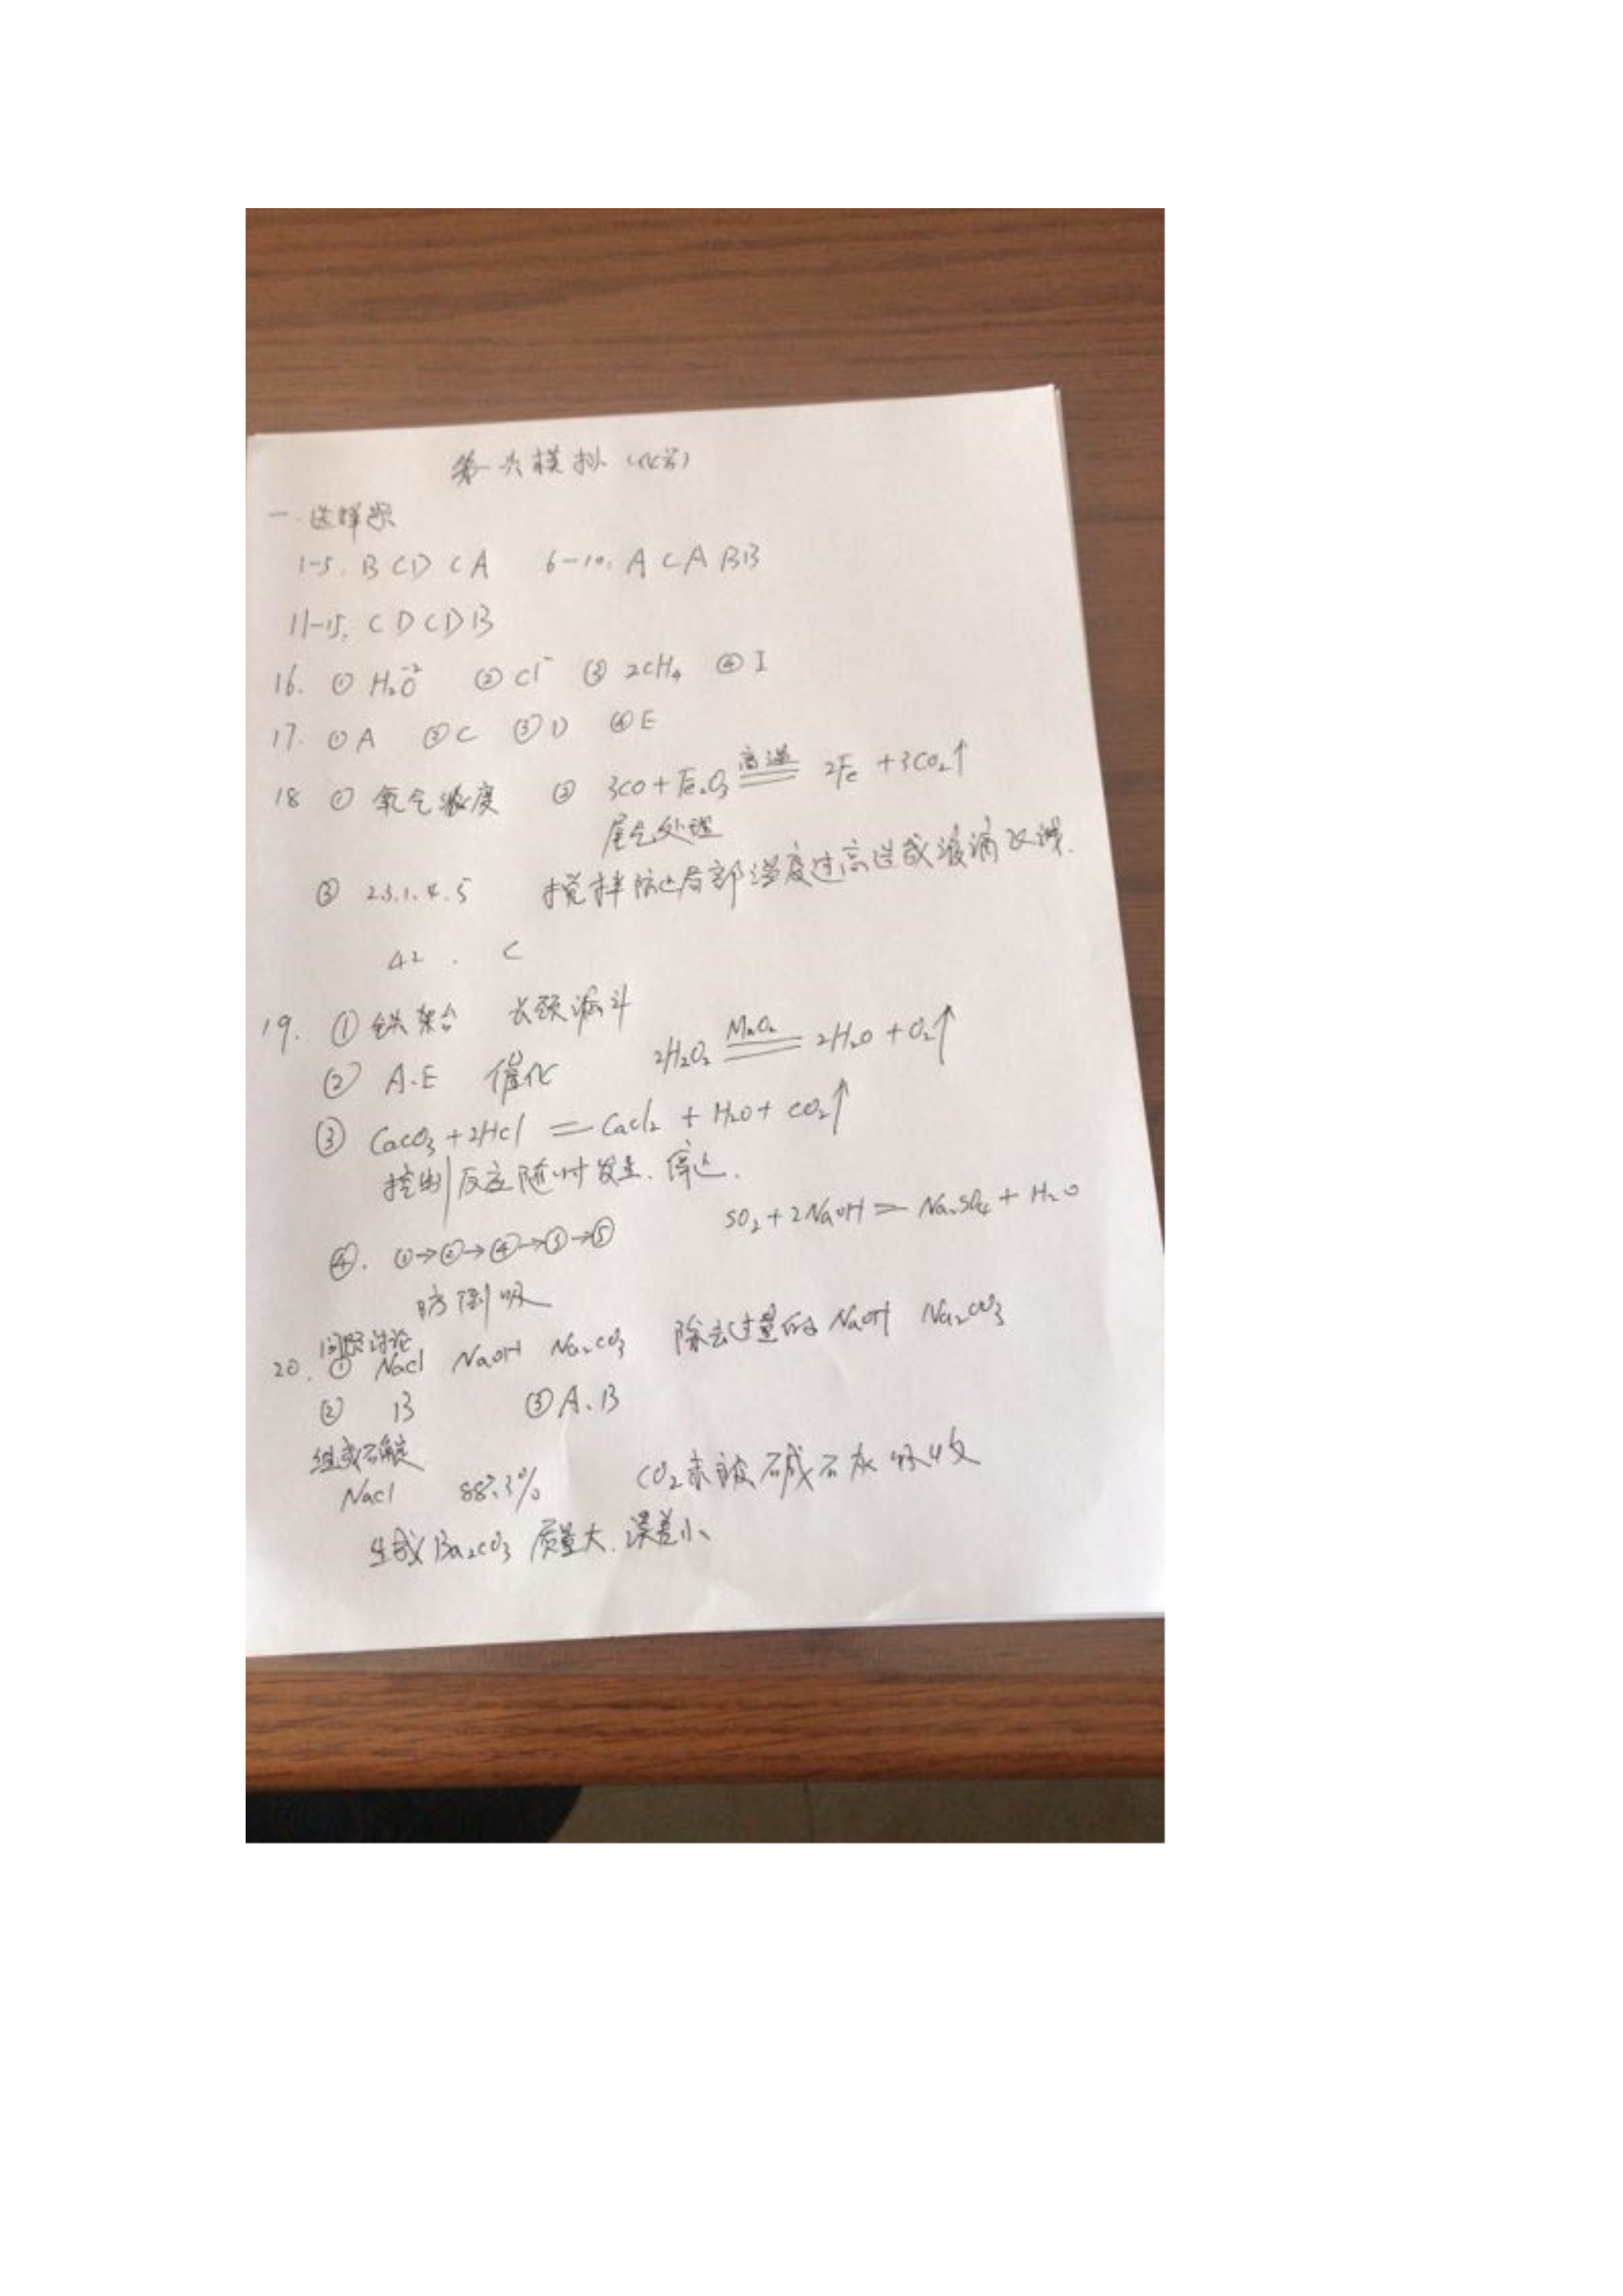 第六模拟（化学）
一.选择题
1-5. B C D C A 6-10. A C A B B
11-15. C D C D B
16. ① H₂O⁻² ② Cl⁻ ③ 2CH₄ ④ I
17. ① A ② C ③ D ④ E
18 ① 氧气浓度 ② 3CO + Fe₂O₃ 高温 2Fe + 3CO₂↑
尾气处理
③ 2.3.1.4.5 搅拌防止局部温度过高造成液滴飞溅.
42 . C
19. ① 铁架台 长颈漏斗
② A.E 催化 2H₂O₂ MnO₂ 2H₂O + O₂↑
③ CaCO₃ + 2HCl = CaCl₂ + H₂O + CO₂↑
控制反应随时发生.停止.
④. ①→②→④→③→⑤ SO₂ + 2NaOH = Na₂SO₄ + H₂O
防倒吸
问题讨论
20. ① NaCl NaOH Na₂CO₃ 除去过量的 NaOH Na₂CO₃
② B ③ A、B
组成确定
NaCl 88.3% CO₂未被碱石灰吸收
生成Ba₂CO₃质量大.误差小